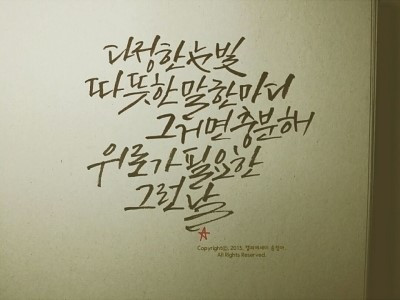 다정한 눈빛
따뜻한 말 한마디
그거면 충분해
위로가 필요한
그런 날
Copyright(c), 2015,
All Rights Reserved.